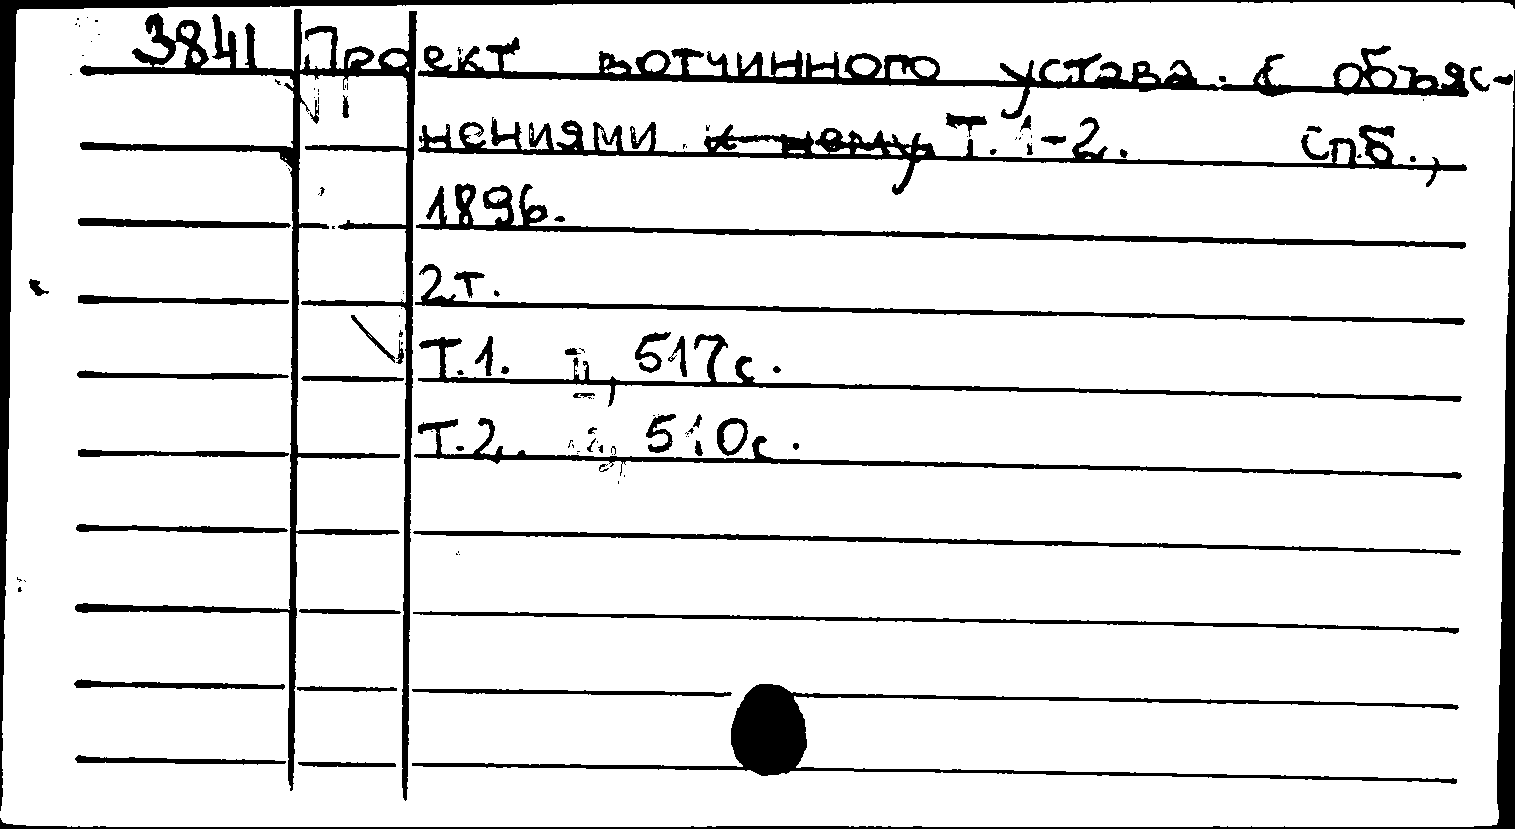 3841 Проект вотчинного устава. С объяс-
нениями к нему Т. 1-2. Спб.,
1896.
2т.
Т.1. II, 517с.
Т.2. 510с.